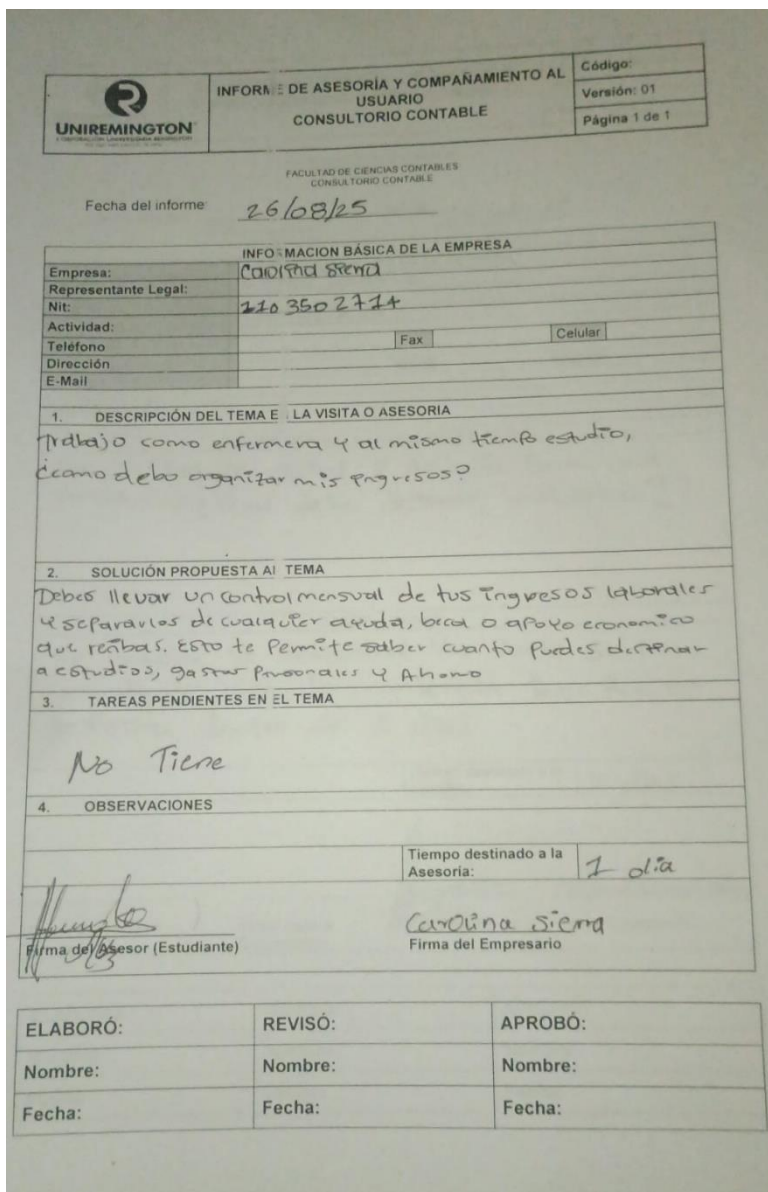 UNIREMINGTON
INFORME DE ASESORÍA Y COMPAÑAMIENTO AL
USUARIO
CONSULTORIO CONTABLE
Código:
Versión: 01
Página 1 de 1
FACULTAD DE CIENCIAS CONTABLES
CONSULTORIO CONTABLE
Fecha del informe 26/08/25
INFORMACION BÁSICA DE LA EMPRESA
Empresa: Carolina Sierra
Representante Legal:
Nit: 1103502714
Actividad:
Teléfono Fax Celular
Dirección
E-Mail
1. DESCRIPCIÓN DEL TEMA E LA VISITA O ASESORIA
Trabajo como enfermera y al mismo tiempo estudio,
¿como debo organizar mis ingresos?
2. SOLUCIÓN PROPUESTA AL TEMA
Debes llevar un control mensual de tus ingresos laborales
y separarlos de cualquier ayuda, beca o apoyo economico
que recibas. Esto te permite saber cuanto puedes destinar
a estudios, gastos personales y Ahorro
3. TAREAS PENDIENTES EN EL TEMA
No Tiene
4. OBSERVACIONES
Tiempo destinado a la
Asesoria: 1 dia
Carolina Sierra
Firma del Asesor (Estudiante) Firma del Empresario
ELABORÓ: REVISÓ: APROBÓ:
Nombre: Nombre: Nombre:
Fecha: Fecha: Fecha: